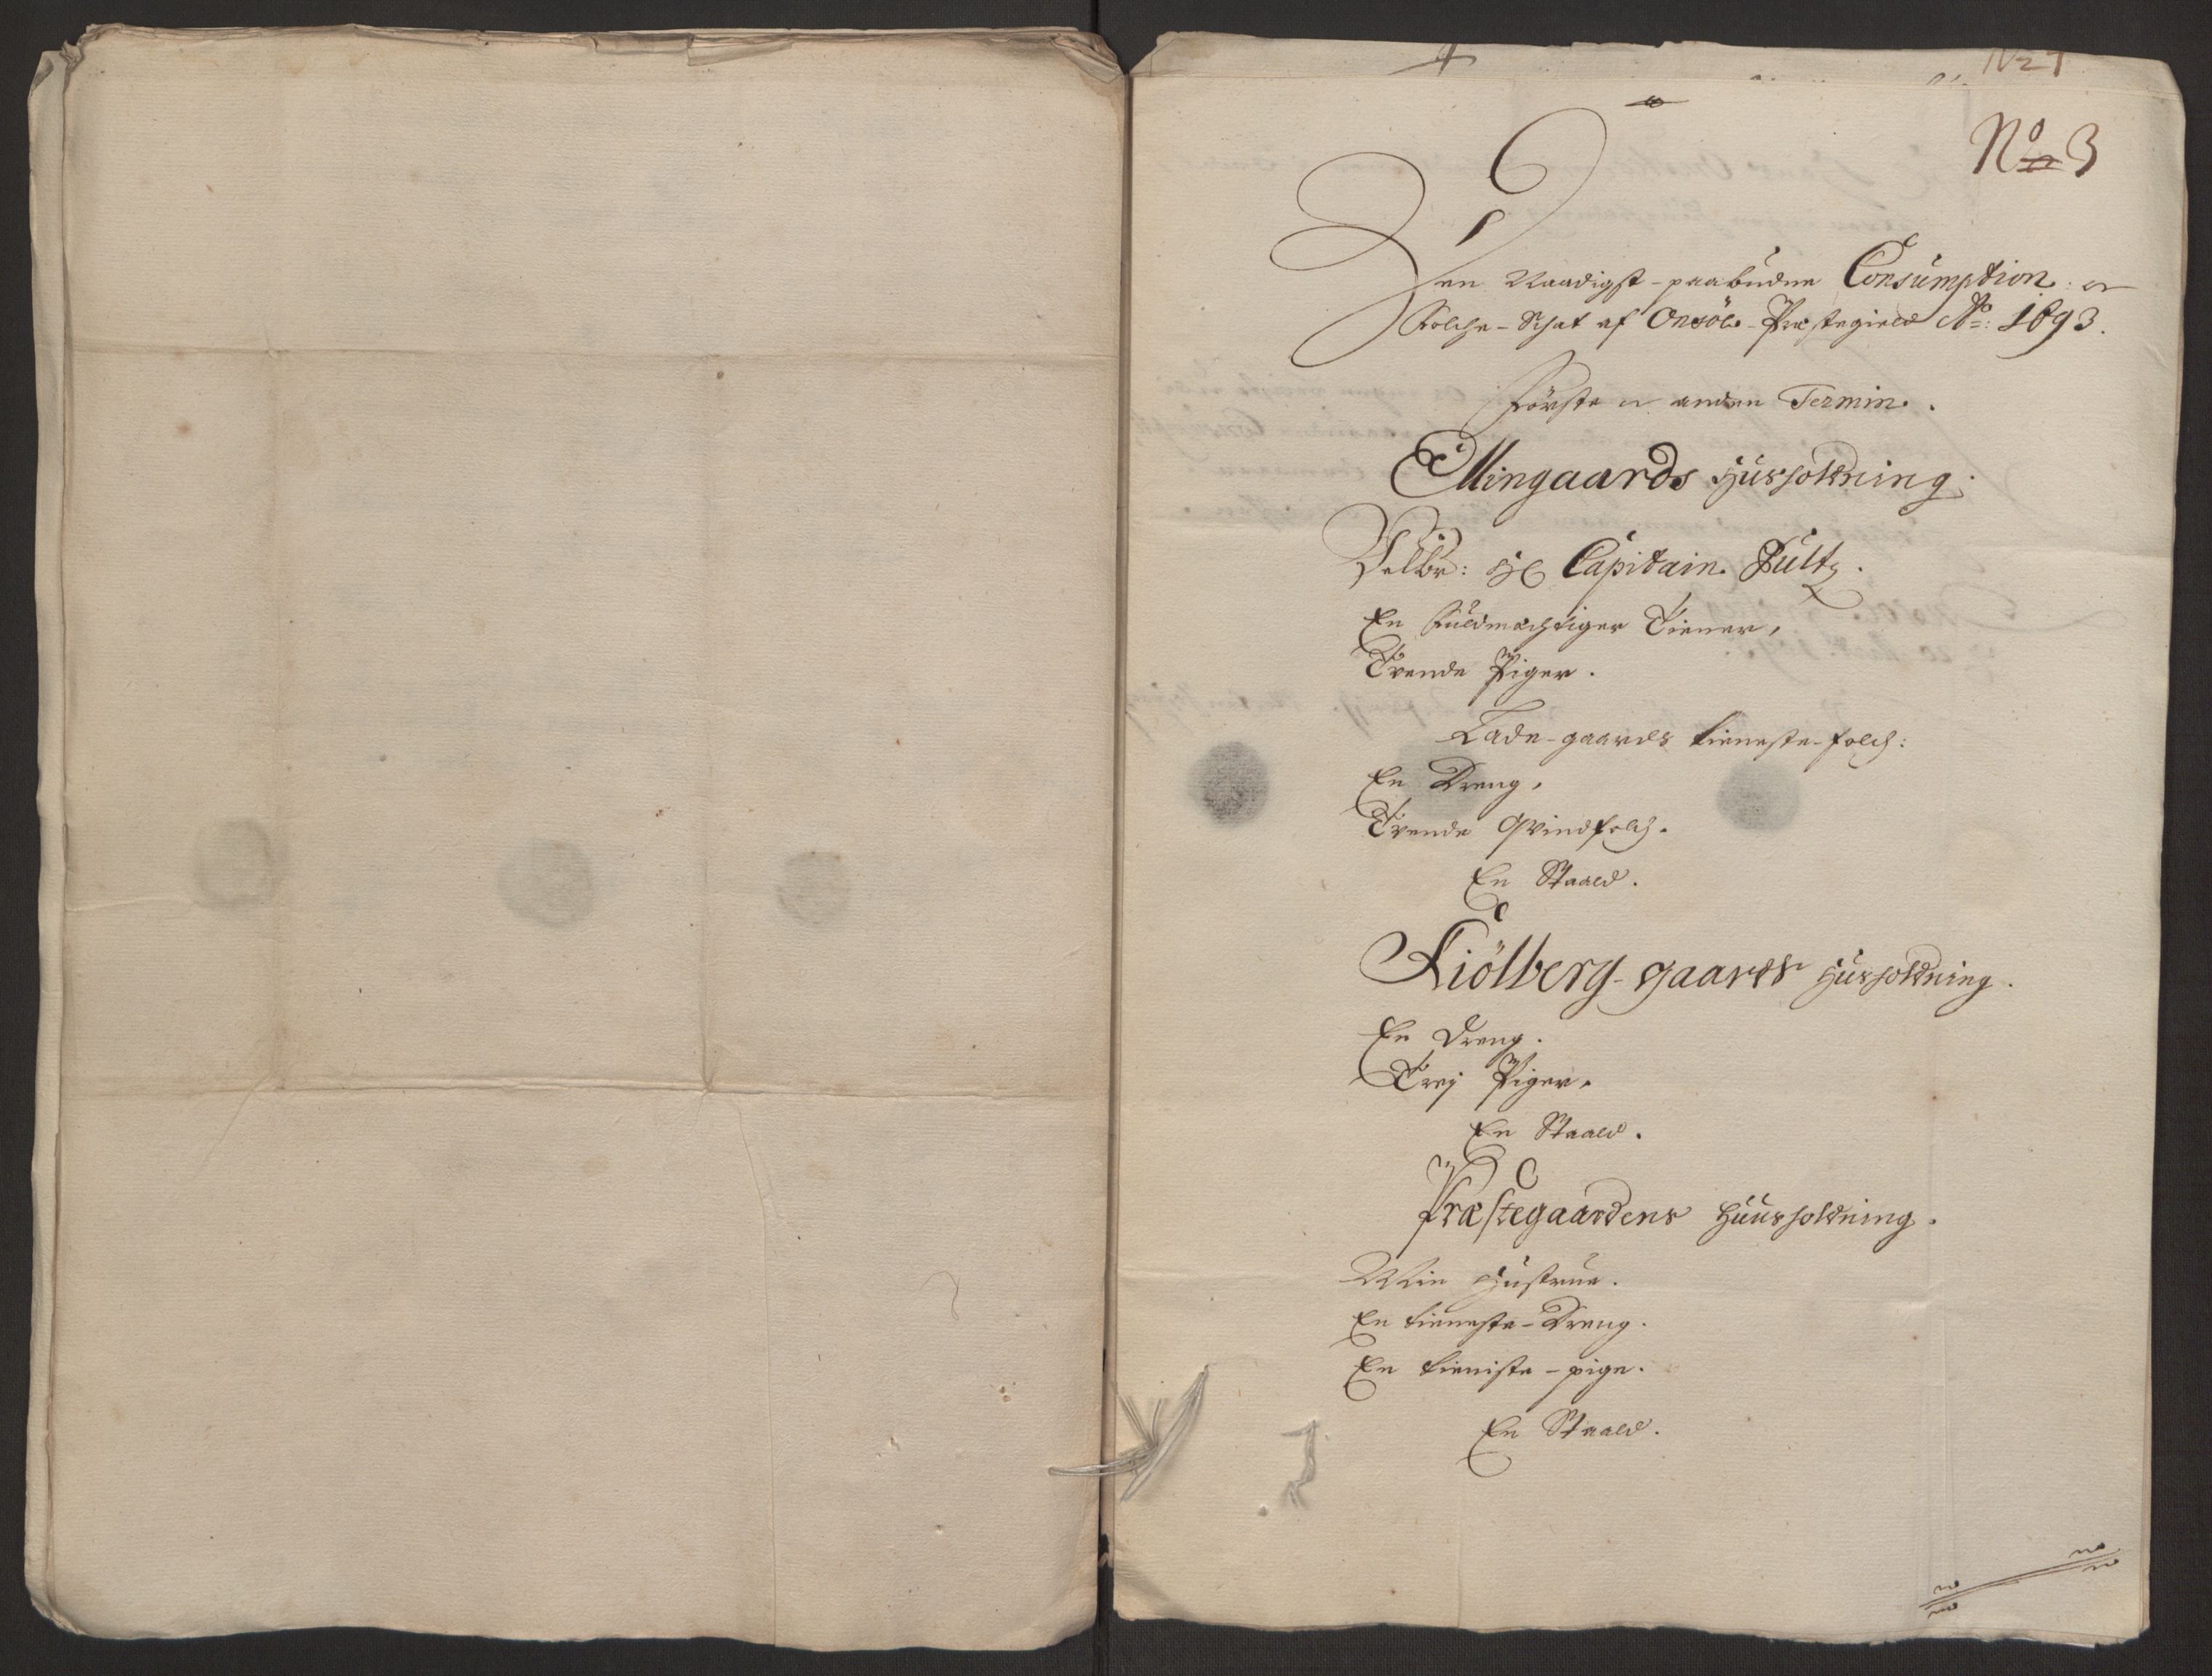 No 3
Den Naadigst-paabudne Consumption: og
Folche-Schat af Onsöe-Præstegield Ao: 1693.
Förste og anden Termin.
Ellingaards Huusholdning.
Selbr: Hr Capitain Bültz.
En Fuldmechtiger Tiener,
Trende Piger.
Lade-gaards tieneste-folch:
En Dreng,
Trende Qvindfolch.
En Staald.
Kiölberg-gaards Huusholdning.
En Dreng.
Trej Piger.
En Staald.
Præstegaardens Huusholdning.
Min Hustrue.
En tieneste-Dreng.
En tieniste-pige.
En Staald.